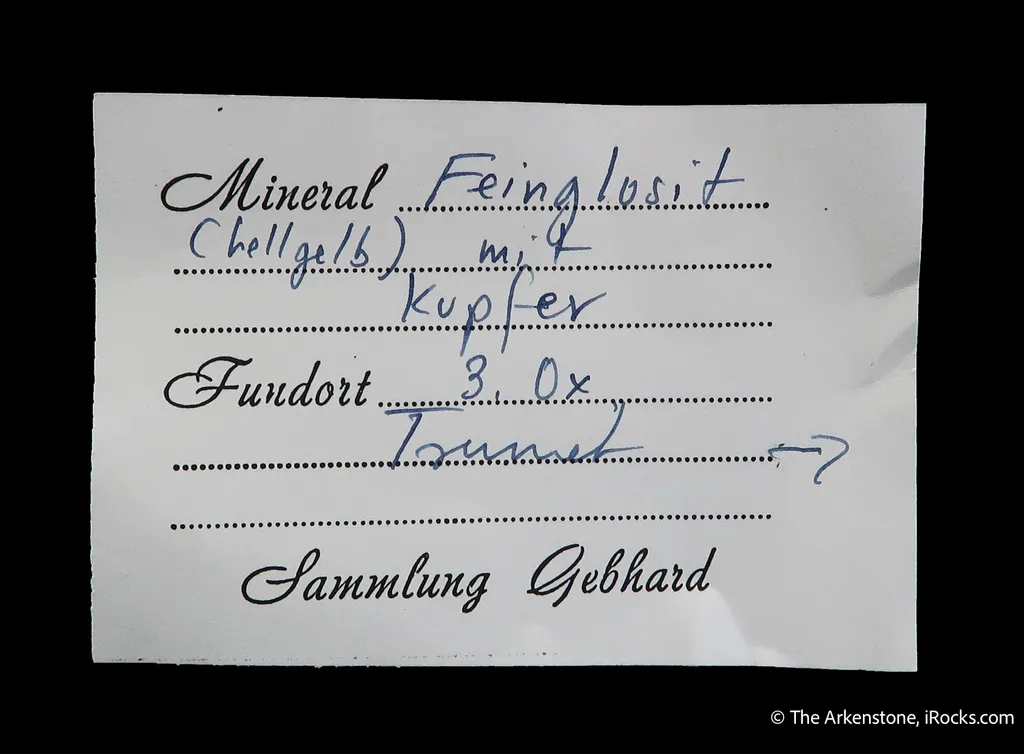 Mineral Feinglosit
(hellgelb) mit
Kupfer
Fundort 3. Ox.
Tsumeb →
Sammlung Gebhard
© The Arkenstone, iRocks.com